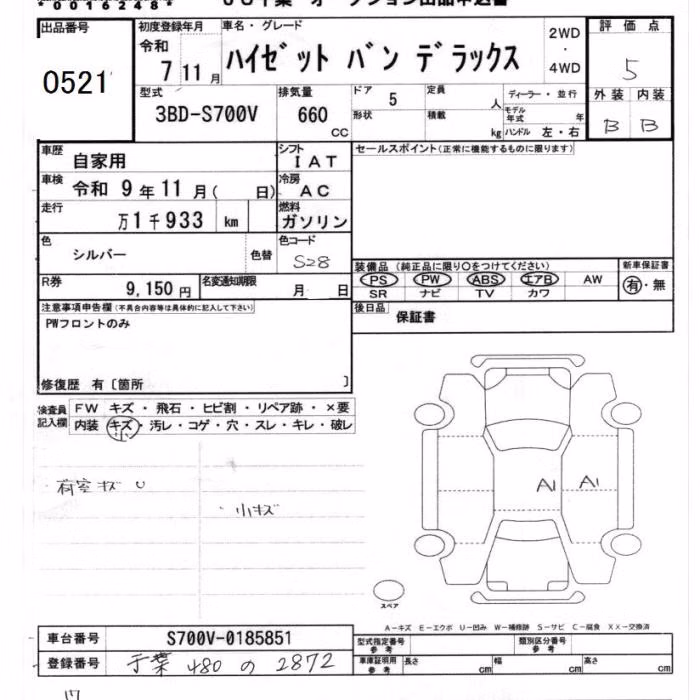 *0016248*
出品番号 0521
初度登録年月 令和 7年11月
車名・グレード ハイゼット バン デラックス
2WD・4WD
評価点 5
型式 3BD-S700V
排気量 660 CC
ドア 5
形状
定員 人
積載 kg
ディーラー・並行
モデル年式 年
ハンドル 左・右
外装 内装
B B
車歴 自家用
シフト IAT
セールスポイント(正常に機能するものに限ります)
車検 令和 9年11月( 日)
冷房 AC
走行 万1千933 km
燃料 ガソリン
色 シルバー 色替
色コード S28
R券 9,150円
名変通知期限 月 日
装備品 (純正品に限り○をつけてください)
PS PW ABS エアB AW
SR ナビ TV カワ
新車保証書 有・無
注意事項申告欄(不具合内容等は具体的に記入して下さい)
PWフロントのみ
後日品 保証書
修復歴 有〔箇所 〕
検査員記入欄
FW キズ・飛石・ヒビ割・リペア跡・×要
内装 キズ・汚レ・コゲ・穴・スレ・キレ・破レ
小
荷室キズ U
小キズ
A1 A1
スペア
A-キズ E-エクボ U-凹み W-補修跡 S-サビ C-腐食 XX-交換済
車台番号 S700V-0185851
型式指定番号 参考
類別区分番号 参考
登録番号 千葉 480 の 2872
車庫証明用 参考 長さ cm 幅 cm 高さ cm
17